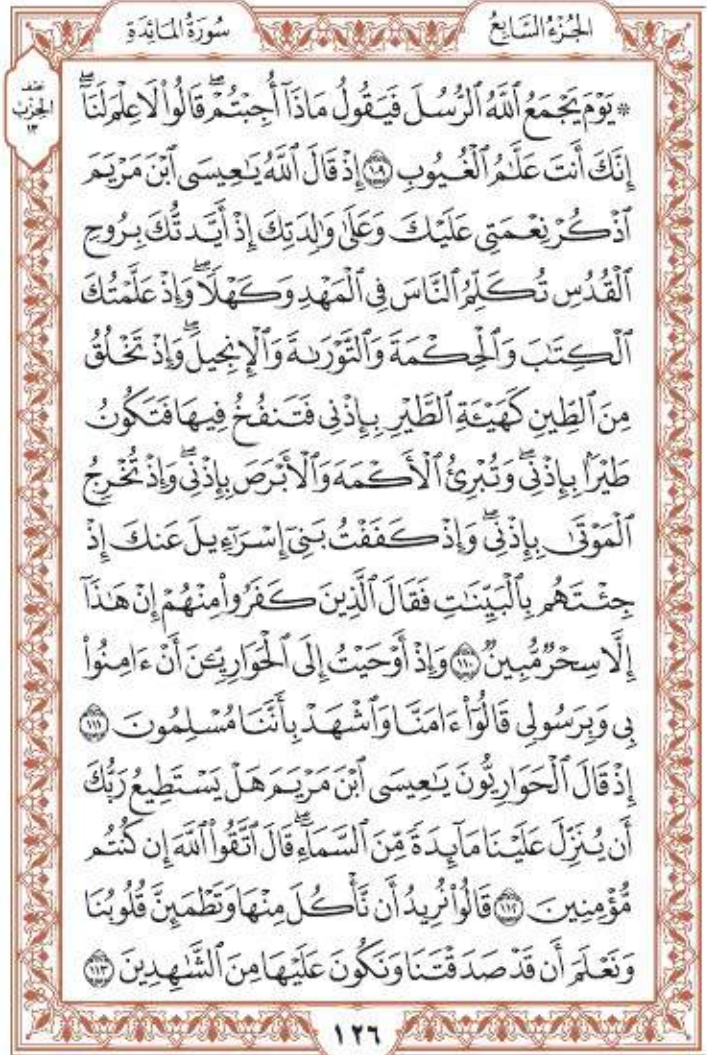 الجُزْءُ السَّابِعُ
سُورَةُ المَائِدَةِ
نصف
الحِزْب
١٣
۞ يَوْمَ يَجْمَعُ ٱللَّهُ ٱلرُّسُلَ فَيَقُولُ مَاذَآ أُجِبْتُمْۖ قَالُواْ لَا عِلْمَ لَنَآۖ
إِنَّكَ أَنتَ عَلَّٰمُ ٱلْغُيُوبِ ١٠٩ إِذْ قَالَ ٱللَّهُ يَٰعِيسَى ٱبْنَ مَرْيَمَ
ٱذْكُرْ نِعْمَتِي عَلَيْكَ وَعَلَىٰ وَٰلِدَتِكَ إِذْ أَيَّدتُّكَ بِرُوحِ
ٱلْقُدُسِ تُكَلِّمُ ٱلنَّاسَ فِي ٱلْمَهْدِ وَكَهْلًاۖ وَإِذْ عَلَّمْتُكَ
ٱلْكِتَٰبَ وَٱلْحِكْمَةَ وَٱلتَّوْرَىٰةَ وَٱلْإِنجِيلَۖ وَإِذْ تَخْلُقُ
مِنَ ٱلطِّينِ كَهَيْـَٔةِ ٱلطَّيْرِ بِإِذْنِي فَتَنفُخُ فِيهَا فَتَكُونُ
طَيْرًۢا بِإِذْنِيۖ وَتُبْرِئُ ٱلْأَكْمَهَ وَٱلْأَبْرَصَ بِإِذْنِيۖ وَإِذْ تُخْرِجُ
ٱلْمَوْتَىٰ بِإِذْنِيۖ وَإِذْ كَفَفْتُ بَنِيٓ إِسْرَٰٓءِيلَ عَنكَ إِذْ
جِئْتَهُم بِٱلْبَيِّنَٰتِ فَقَالَ ٱلَّذِينَ كَفَرُواْ مِنْهُمْ إِنْ هَٰذَآ
إِلَّا سِحْرٌ مُّبِينٌ ١١٠ وَإِذْ أَوْحَيْتُ إِلَى ٱلْحَوَارِيِّـۧنَ أَنْ ءَامِنُواْ
بِي وَبِرَسُولِي قَالُوٓاْ ءَامَنَّا وَٱشْهَدْ بِأَنَّنَا مُسْلِمُونَ ١١١
إِذْ قَالَ ٱلْحَوَارِيُّونَ يَٰعِيسَى ٱبْنَ مَرْيَمَ هَلْ يَسْتَطِيعُ رَبُّكَ
أَن يُنَزِّلَ عَلَيْنَا مَآئِدَةً مِّنَ ٱلسَّمَآءِۖ قَالَ ٱتَّقُواْ ٱللَّهَ إِن كُنتُم
مُّؤْمِنِينَ ١١٢ قَالُواْ نُرِيدُ أَن نَّأْكُلَ مِنْهَا وَتَطْمَئِنَّ قُلُوبُنَا
وَنَعْلَمَ أَن قَدْ صَدَقْتَنَا وَنَكُونَ عَلَيْهَا مِنَ ٱلشَّٰهِدِينَ ١١٣
١٢٦